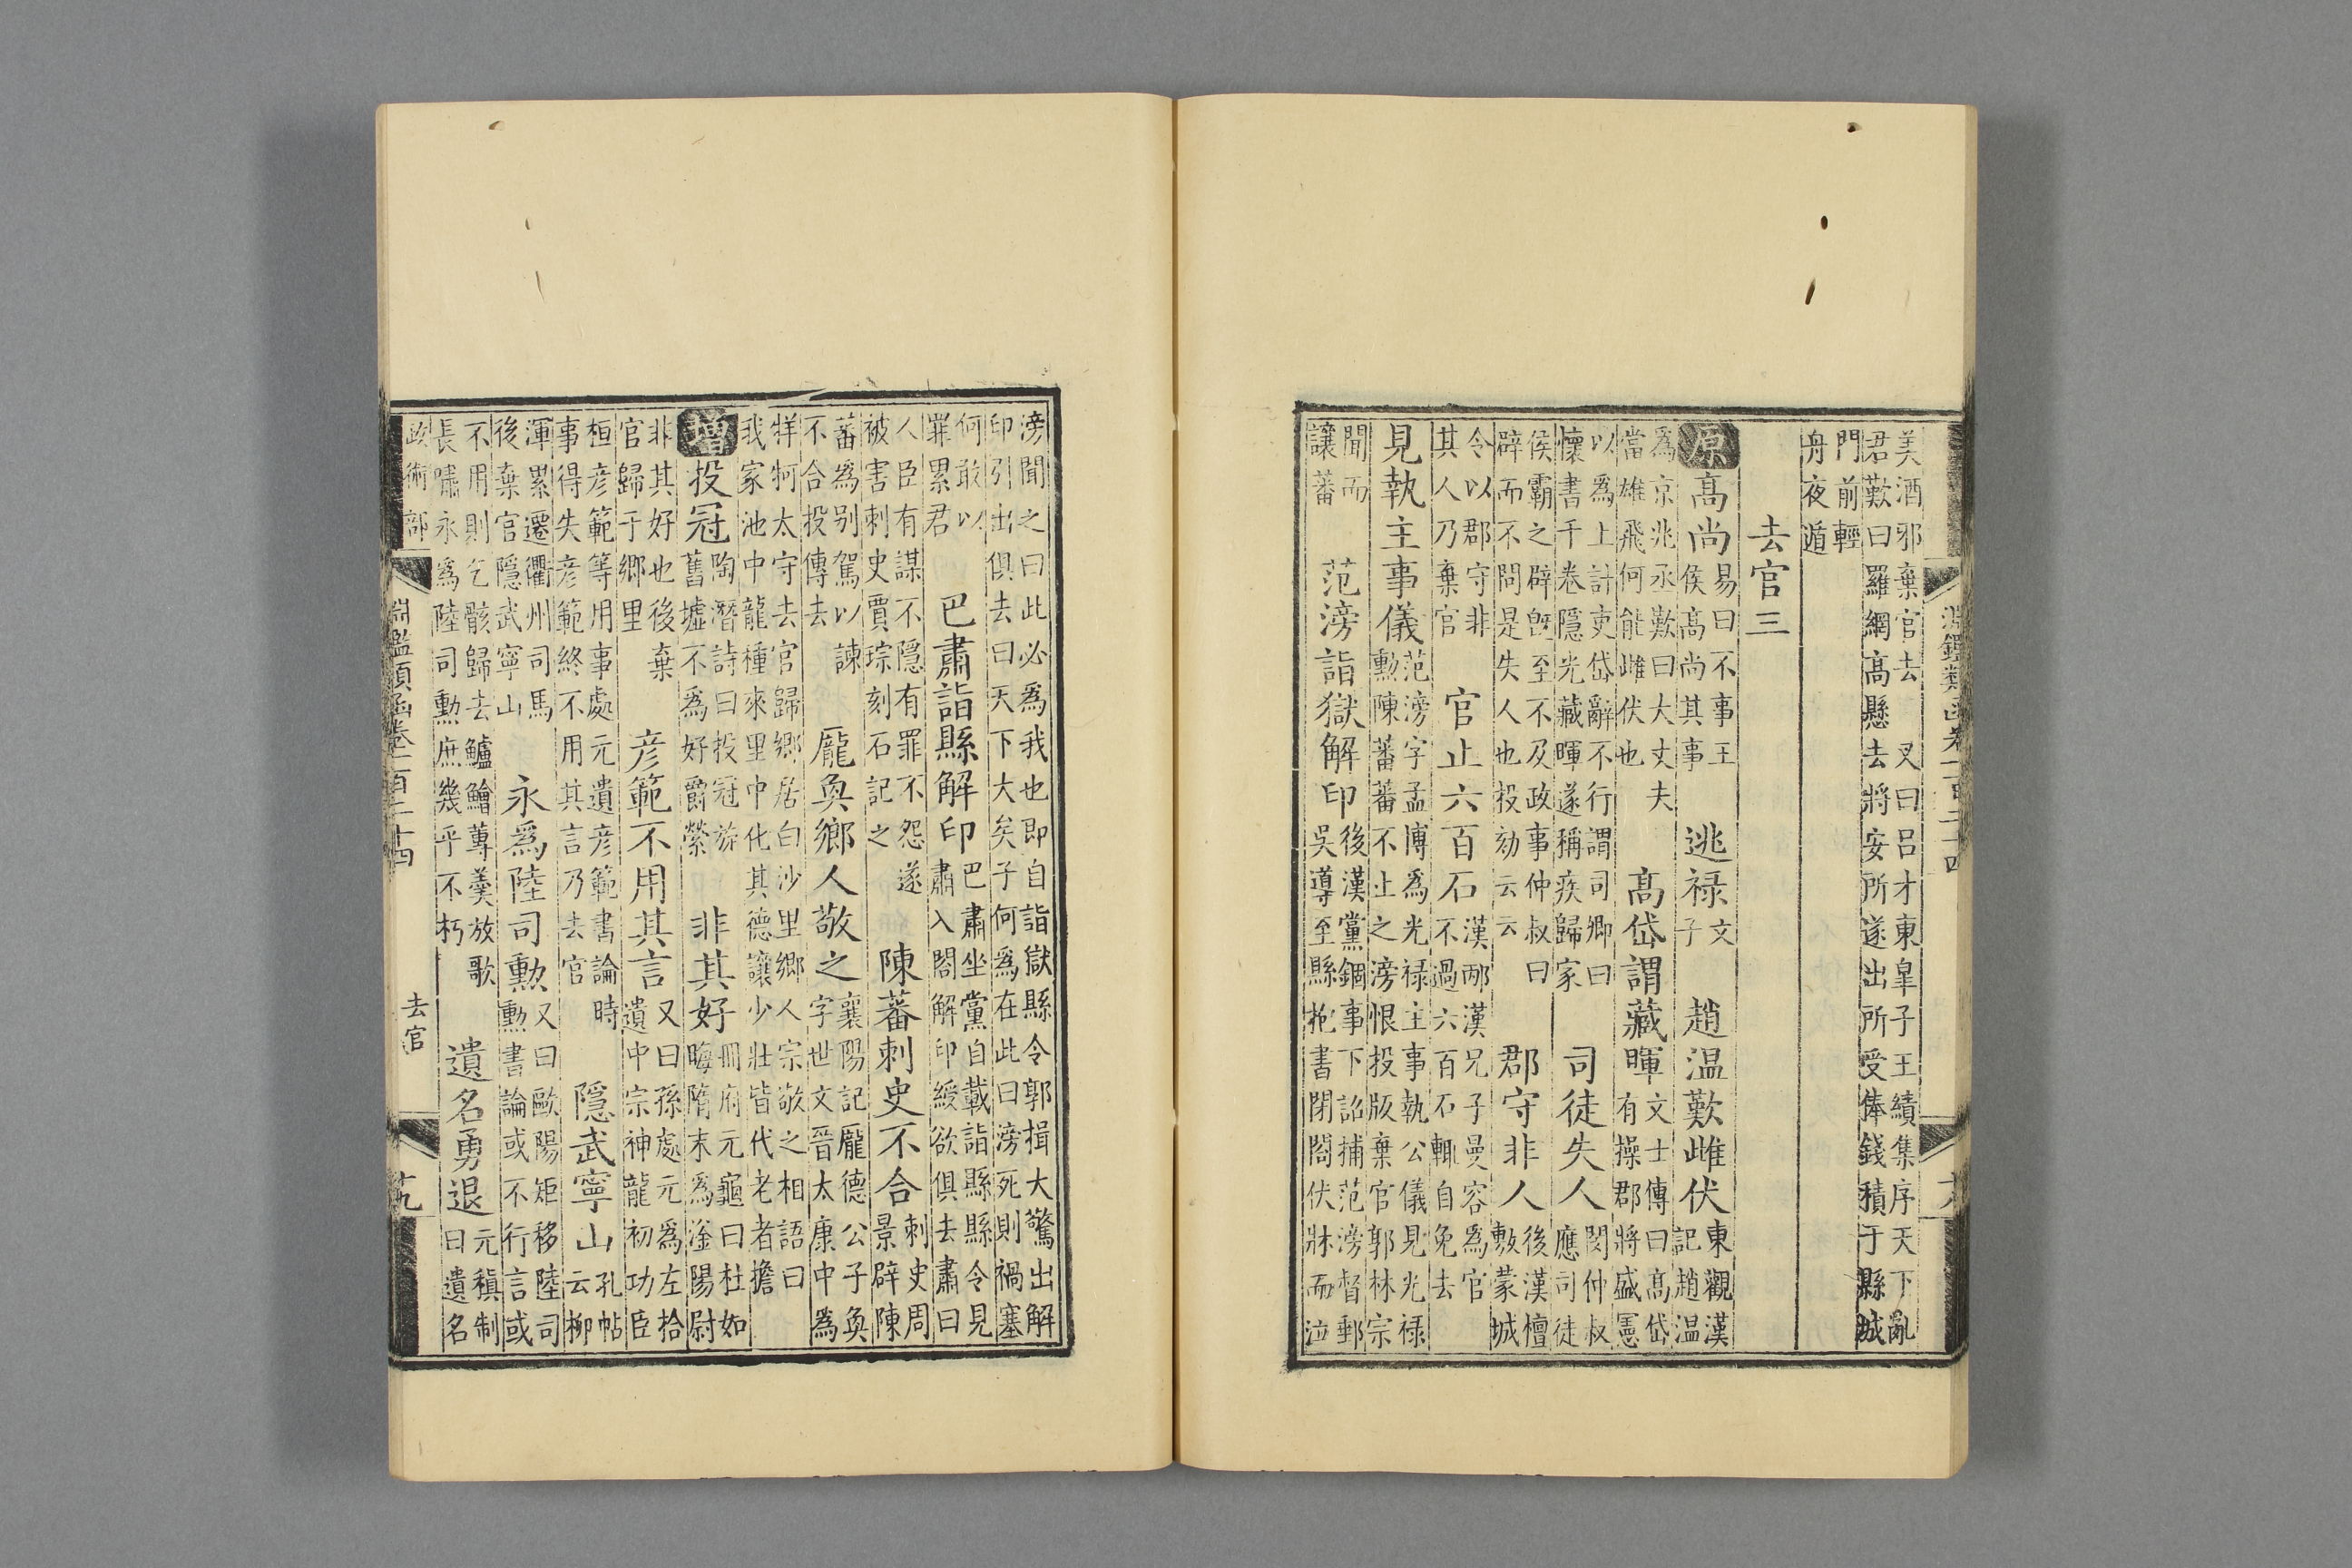 淵鑑類函卷一百二十四
美酒邪棄官去 又曰呂才東皐子王績集序天下亂
君歎曰羅網高懸去將安所遂出所受俸錢積于縣城
門前輕
舟夜遁
去官三
原高尚易曰不事王侯高尚其事 逃祿文子 趙温歎雌伏東觀漢記趙温
為京兆丞歎曰大丈夫當雄飛何能雌伏也 高岱謂藏暉文士傳曰高岱有操郡將盛憲
以為上計吏岱辭不行謂司卿曰懷書千卷隱光藏暉遂稱疾歸家 司徒失人閔仲叔應司徒
侯霸之辟旣至不及政事仲叔曰辟而不問是失人也投劾云云 郡守非人後漢檀敷蒙城
令以郡守非其人乃棄官 官止六百石漢邴漢兄子曼容為官不過六百石輒自免去
見執主事儀范滂字孟博為光祿主事執公儀見光祿勲陳蕃蕃不止之滂恨投版棄官郭林宗
聞而讓蕃 范滂詣獄解印後漢黨錮事下詔捕范滂督郵吳導至縣抱書閉閤伏牀而泣
滂聞之曰此必為我也即自詣獄縣令郭揖大驚出解
印引出俱去曰天下大矣子何為在此曰滂死則禍塞
何敢以罪累君 巴肅詣縣解印巴肅坐黨自載詣縣縣令見肅入閤解印綬欲俱去肅曰
人臣有謀不隱有罪不怨遂被害刺史賈琮刻石記之 陳蕃刺史不合刺史周景辟陳
蕃為别駕以諫不合投傳去 龐奐鄉人敬之襄陽記龐德公子奐字世文晉太康中為
牂牁太守去官歸鄉居白沙里鄉人宗敬之相語曰
我家池中龍種來里中化其德讓少壯皆代老者擔
增投冠陶潛詩曰投冠旋舊墟不為好爵縈 非其好冊府元龜曰杜如晦隋末為滏陽尉
非其好也後棄官歸于鄉里 彦範不用其言又曰孫處元為左拾遺中宗神龍初功臣
桓彦範等用事處元遺彦範書論時事得失彦範終不用其言乃去官 隱武寧山孔帖云柳
渾累遷衢州司馬後棄官隱武寧山 永為陸司勲又曰歐陽矩移陸司勲書論或不行言或
不用則乞骸歸去鱸鱠蓴羹放歌長嘯永為陸司勲庶幾乎不朽 遺名勇退元稹制曰遺名
政術部 淵鑑類函卷一百二十四 去官